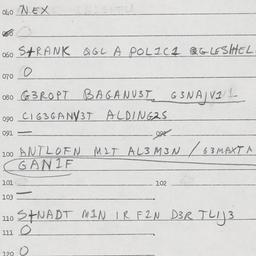 040 NEX
050
060 S+RANK QGL A POL2C1 QGLESHEL
070 O
080 G3ROPT BAGANV3T G3NAJV11
090 C1G3GANV3T ALDING2S
091 — 092
100 ANTLOFN M2T AL3M3N / G3MAXTA
GAN1F
101 102
103 —
110 S+NADT M1N 1R F2N D3R TL1J3
111 O
120 O